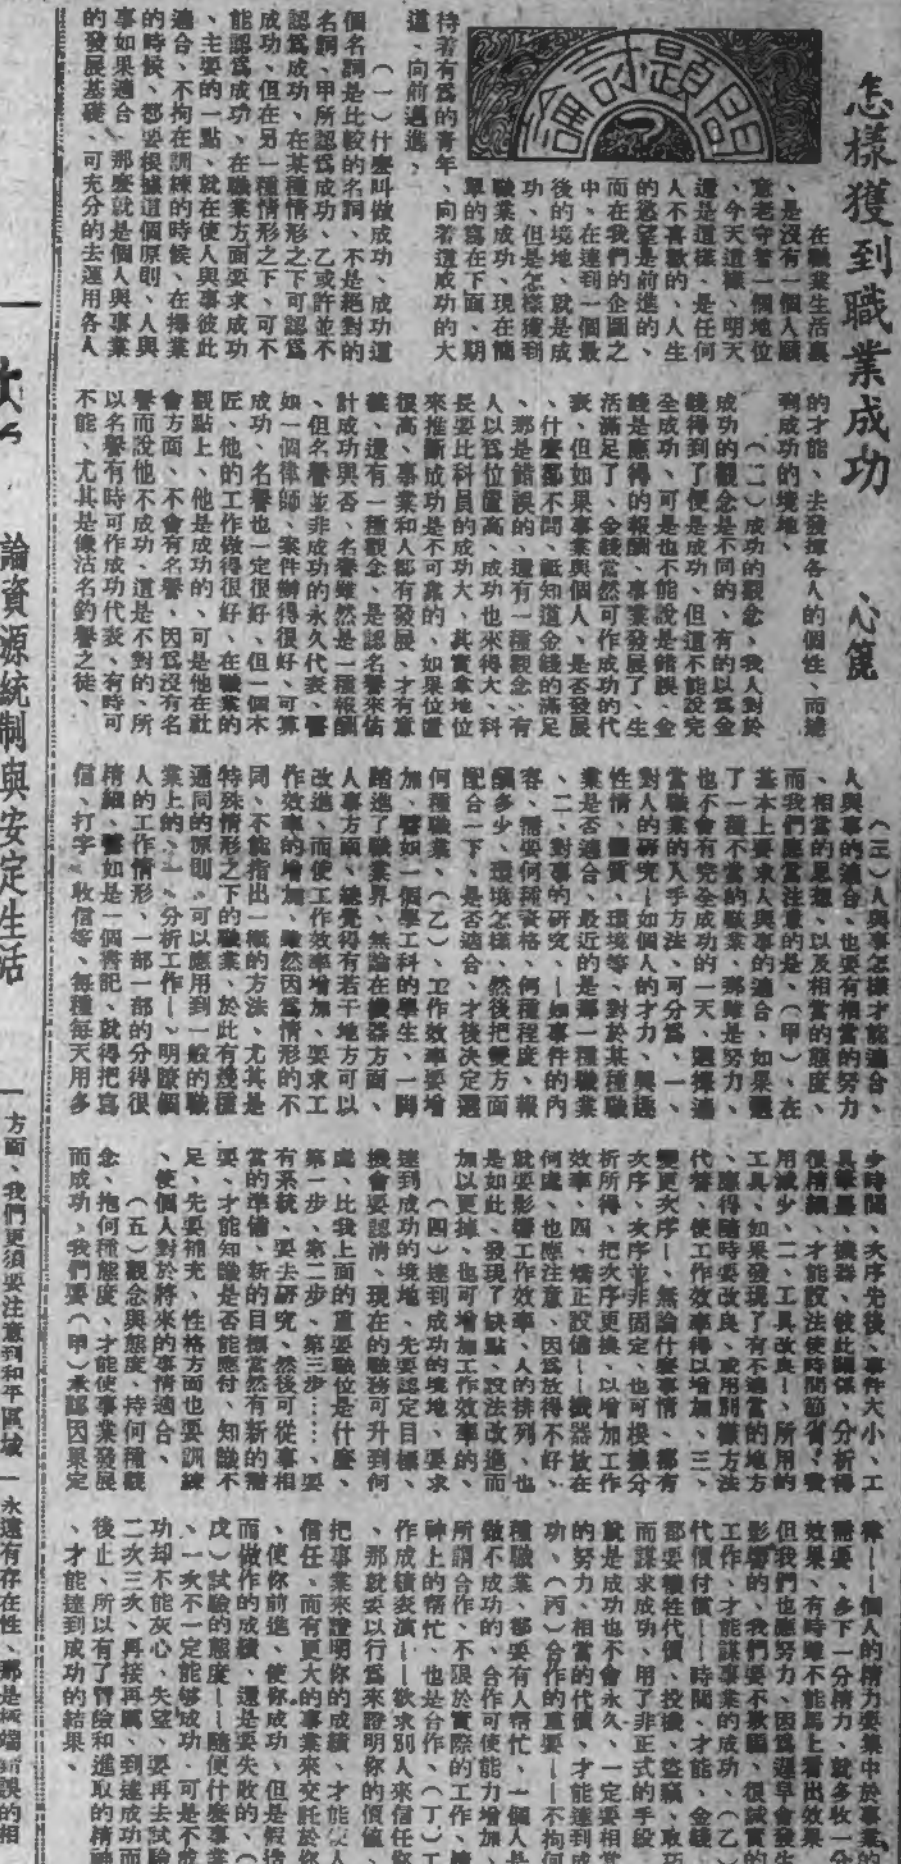 怎樣獲到職業成功
心箆
問題討論
在職業生活裏
、是沒有一個人願
意老守着一個地位
、今天這樣、明天
還是這樣、是任何
人不喜歡的、人生
的慾望是前進的、
而在我們的企圖之
中、在達到一個最
後的境地、就是成
功、但是怎樣獲到
職業成功、現在簡
單的寫在下面、期
待着有爲的青年、向着這成功的大
道、向前邁進、
（一）什麼叫做成功、成功這
個名詞是比較的名詞、不是絕對的
名詞、甲所認爲成功、乙或許並不
認爲成功、在某種情形之下可認爲
成功、但在另一種情形之下、可不
能認爲成功、在職業方面要求成功
、主要的一點、就在使人與事彼此
適合、不拘在訓練的時候、在擇業
的時候、都要根據這個原則、人與
事如果適合、那麼就是個人與事業
的發展基礎、可充分的去運用各人
的才能、去發揮各人的個性、而達
到成功的境地、
（二）成功的觀念、我人對於
成功的觀念是不同的、有的以爲金
錢得到了便是成功、但這不能說完
全成功、可是也不能說是錯誤、金
錢是應得的報酬、事業發展了、生
活滿足了、金錢當然可作成功的代
表、但如果事業與個人、是否發展
、什麼都不問、祗知道金錢的滿足
、那是錯誤的、還有一種觀念、有
人以爲位置高、成功也來得大、科
長要比科員的成功大、其實拿地位
來推斷成功是不可靠的、如果位置
很高、事業和人都有發展、才有意
義、還有一種觀念、是認名譽來估
計成功與否、名譽雖然是一種報酬
、但名譽並非成功的永久代表、譬
如一個律師、案件辦得很好、可算
成功、名譽也一定很好、但一個木
匠、他的工作做得很好、在職業的
觀點上、他是成功的、可是他在社
會方面、不會有名譽、因爲沒有名
譽而說他不成功、這是不對的、所
以名譽有時可作成功代表、有時可
不能、尤其是像沽名釣譽之徒、
（三）人與事怎樣才能適合、
人與事的適合、也要有相當的努力
、相當的思想、以及相當的態度、
而我們應當注意的是、（甲）、在
基本上要求人與事的適合、如果選
了一種不當的職業、那雖是努力、
也不會有完全成功的一天、選擇適
當職業的入手方法、可分爲、一、
對人的研究—如個人的才力、興趣
性情、體質、環境等、對於某種職
業是否適合、最近的是那一種職業
、二、對事的研究、—如事件的內
容、需要何種資格、何種程度、報
酬多少、環境怎樣、然後把雙方面
配合一下、是否適合、才後決定選
何種職業、（乙）、工作效率要增
加、譬如一個學工科的學生、一脚
踏進了職業界、無論在機器方面、
人事方面、總覺得有若干地方可以
改進、而使工作效率增加、要求工
作效率的增加、雖然因爲情形的不
同、不能指出一概的方法、尤其是
特殊情形之下的職業、於此有幾種
通同的原則、可以應用到一般的職
業上的、一、分析工作—、明瞭個
人的工作情形、一部一部的分得很
精細、譬如是一個書記、就得把寫
信、打字、收信等、每種每天用多
少時間、次序先後、事件大小、工
具筆墨、機器、彼此關係、分析得
很精細、才能設法使時間節省、費
用減少、二、工具改良—所用的
工具、如果發現了有不適當的地方
、應得隨時要改良、或用別樣方法
代替、使工作效率得以增加、三、
變更次序—、無論什麼事情、都有
次序、次序並非固定、也可根據分
析所得、把次序更換、以增加工作
效率、四、矯正設備—機器放在
何處、也應注意、因爲放得不好、
就要影響工作效率、人的排列、也
是如此、發現了缺點、設法改進而
加以更換、也可增加工作效率的、
（四）達到成功的境地、要求
達到成功的境地、先要認定目標、
機會要認清、現在的職務可升到何
處、比我上面的重要職位是什麼、
第一步、第二步、第三步……、要
有系統、要去研究、然後可從事相
當的準備、新的目標當然有新的需
要、才能知識是否能應付、知識不
足、先要補充、性格方面也要訓練
、使個人對於將來的事情適合、
（五）觀念與態度、持何種觀
念、抱何種態度、才能使事業發展
而成功、我們要（甲）承認因果定
律——個人的精力要集中於事業的
需要、多下一分精力、就多收一分
效果、有時雖不能馬上看出效果、
但我們也應努力、因爲遲早會發生
影響的、我們要不欺騙、很誠實的
工作、才能謀事業的成功、（乙）
代價付償——時間、才能、金錢、
都要犧牲代價、投機、盜竊、取巧
而謀求成功、用了非正式的手段、
就是成功也不會永久、一定要相當
的努力、相當的代價、才能達到成
功、（丙）合作的重要——不拘何
種職業、都要有人幇忙、一個人是
做不成功的、合作可使能力增加、
所謂合作、不限於實際的工作、精
神上的幇忙、也是合作、（丁）工
作成績表演——欲求別人來信任你
、那就要以行爲來證明你的價值、
把事業來證明你的成績、才能使人
信任、而有更大的事業來交託於你
、使你前進、使你成功、但是假造
而做作的成績、還是要失敗的、（
戊）試驗的態度—隨便什麼事業
、一次不一定能够成功、可是不成
功却不能灰心、失望、要再去試驗
二次三次、再接再厲、到達成功而
後止、所以有了冒險和進取的精神
、才能達到成功的結果、
論資源統制與安定生活
一方面、我們更須要注意到和平區域
永遠有存在性、那是極端錯誤的相